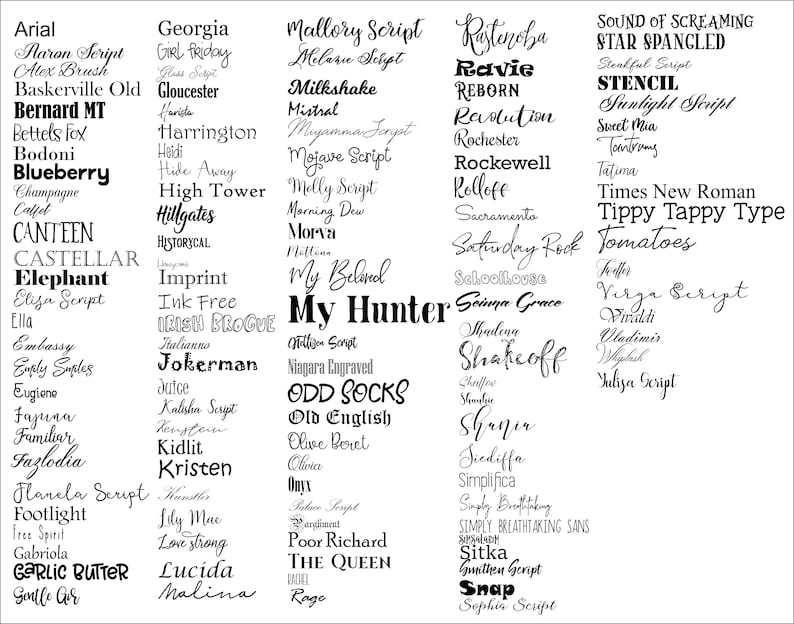 Arial
Aaron Script
Alex Brush
Baskerville Old
Bernard MT
Bettels Fox
Bodoni
Blueberry
Champagne
Catfet
CANTEEN
CASTELLAR
Elephant
Elisa Script
Ella
Embassy
Emily Smiles
Eugiene
Fajuna
Familiar
Fazlodia
Flanela Script
Footlight
Free Spirit
Gabriola
GARLIC BUTTER
Gentle Air
Georgia
Girl Friday
Glass Script
Gloucester
Harista
Harrington
Heidi
Hide Away
High Tower
Hillgates
Historycal
Honeycomb
Imprint
Ink Free
IRISH BROGUE
Italianno
Jokerman
Juice
Kalisha Script
Kenstein
Kidlit
Kristen
Kunstler
Lily Mae
Love strong
Lucida
Malina
Mallory Script
Melanie Script
Milkshake
Mistral
Miyamma Script
Mojave Script
Molly Script
Morning Dew
Morva
Mottona
My Beloved
My Hunter
Script
Niagara Engraved
ODD SOCKS
Old English
Olive Beret
Olivia
Onyx
Palace Script
Parchment
Poor Richard
THE QUEEN
RACHEL
Rage
Rastenoba
Ravie
REBORN
Revolution
Rochester
Rockwell
Rolloff
Sacramento
Saturday Rock
Schoolhouse
Seima Grace
Shadena
Shakeoff
Shallow
Shaubie
Shania
Siediffa
Simplifica
Simply Breathtaking
SIMPLY BREATHTAKING SANS
Sitka
Smithen Script
Snap
Sophia Script
SOUND OF SCREAMING
STAR SPANGLED
Steakful Script
STENCIL
Sunlight Script
Sweet Mia
Tantrums
Tatima
Times New Roman
Tippy Tappy Type
Tomatoes
Virga Script
Vivaldi
Vladimir
Whiplash
Yuliza Script